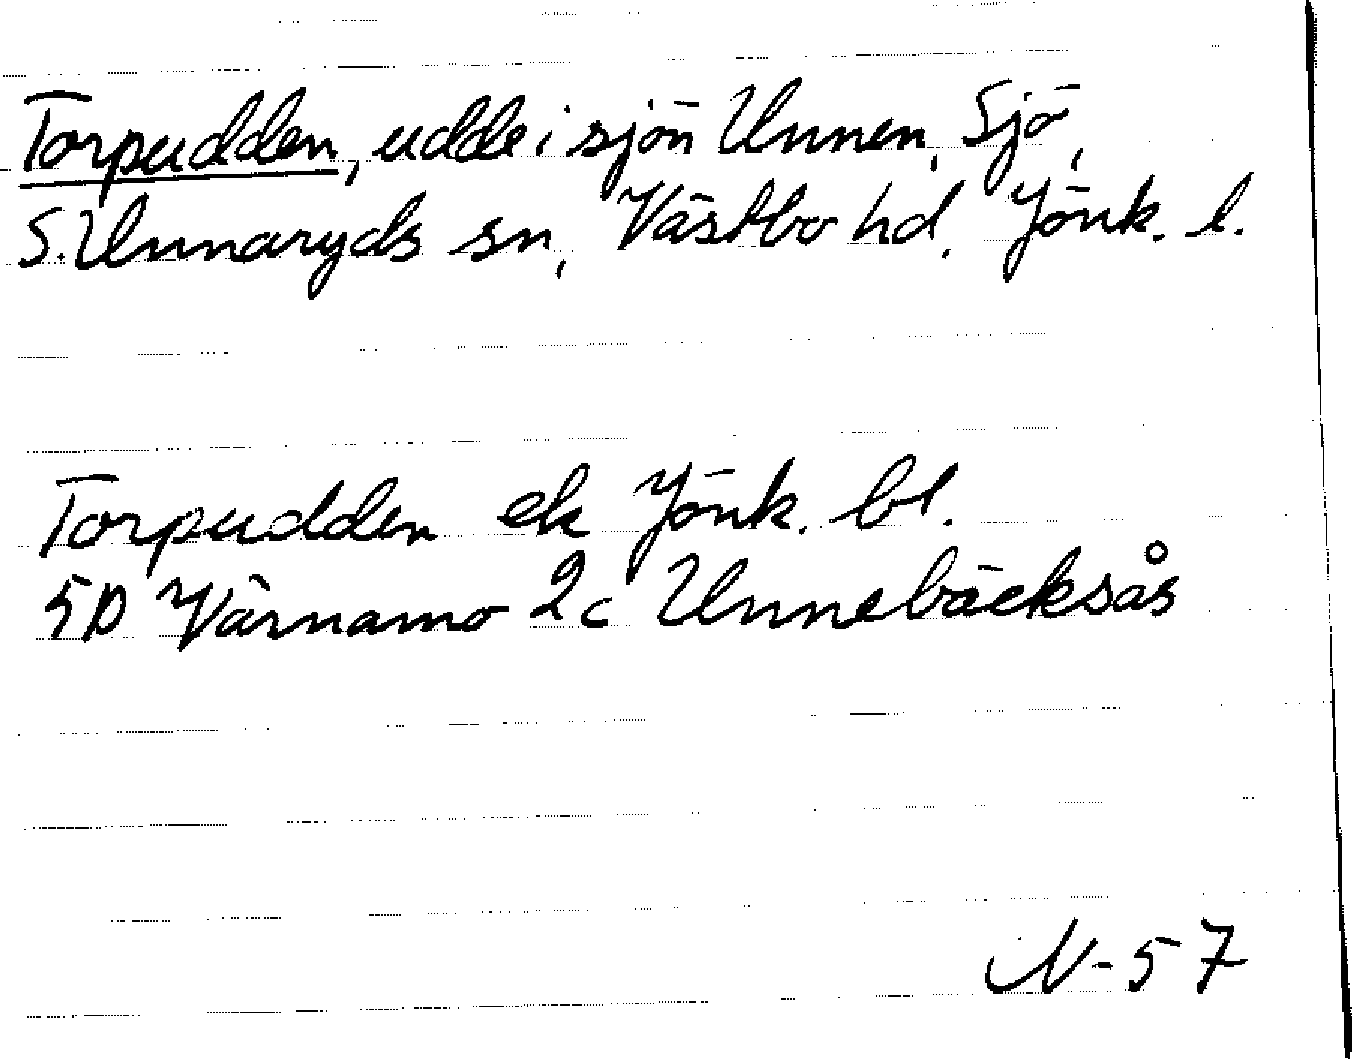 Torpudden, udde i sjön Unnen, Sjö,
S. Unnaryds sn, Västbo hd. Jönk. l.
Torpudden ek Jönk. bl.
5D Värnamo 2c Unnebäcksås
N-57